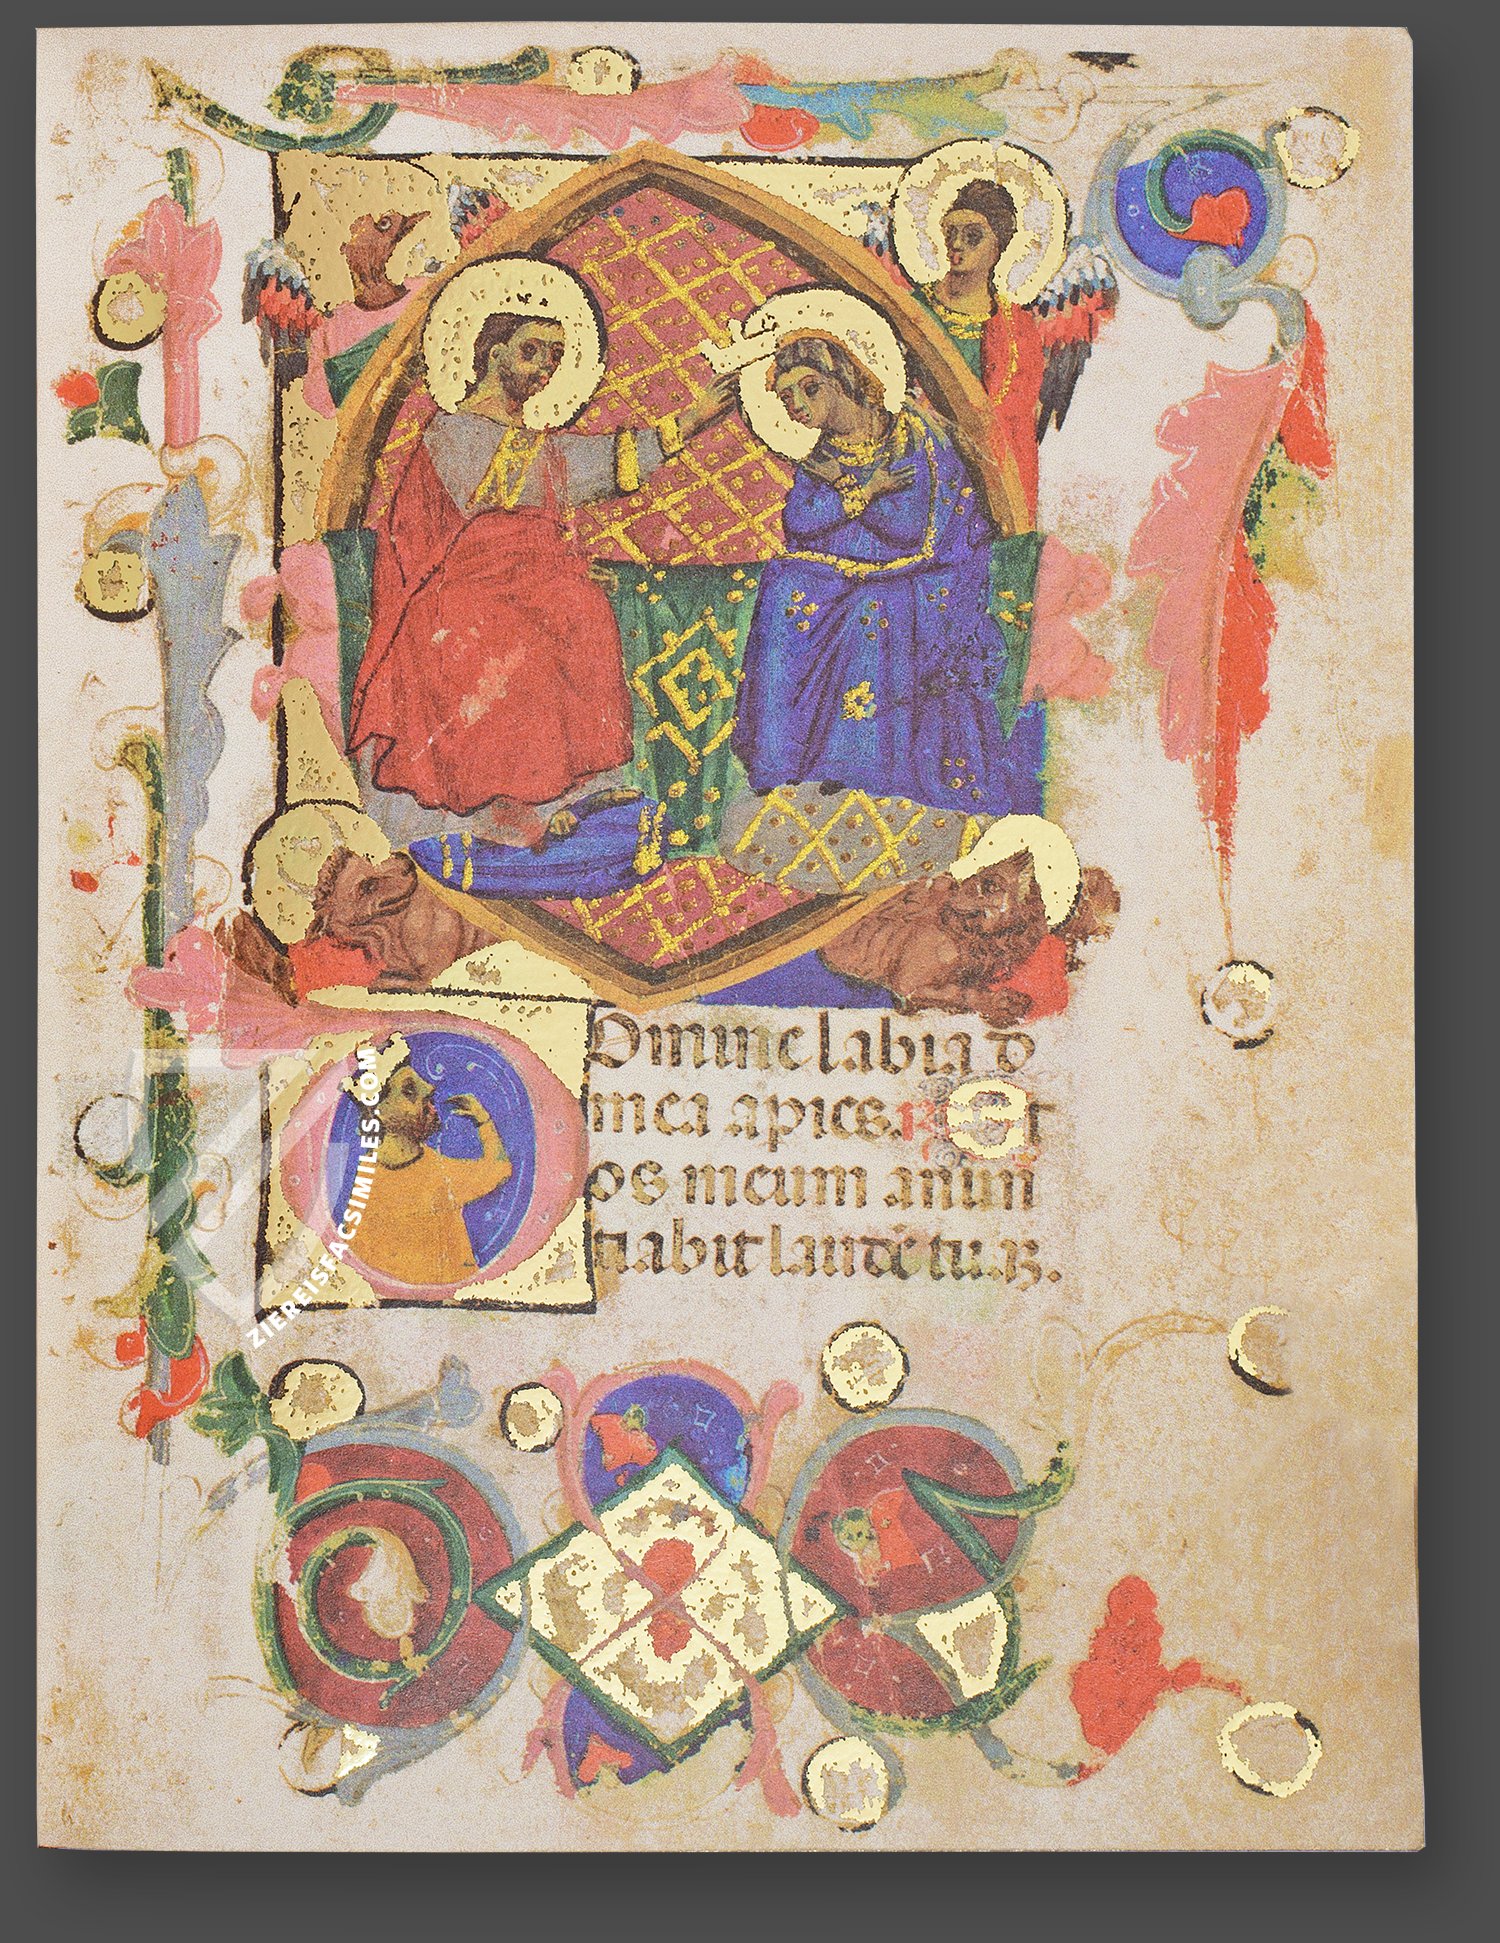 Domine labia
mea apies. R Et
os meum anun
tiabit laudē tuaȝ.
ZIEREISFACSIMILES.COM